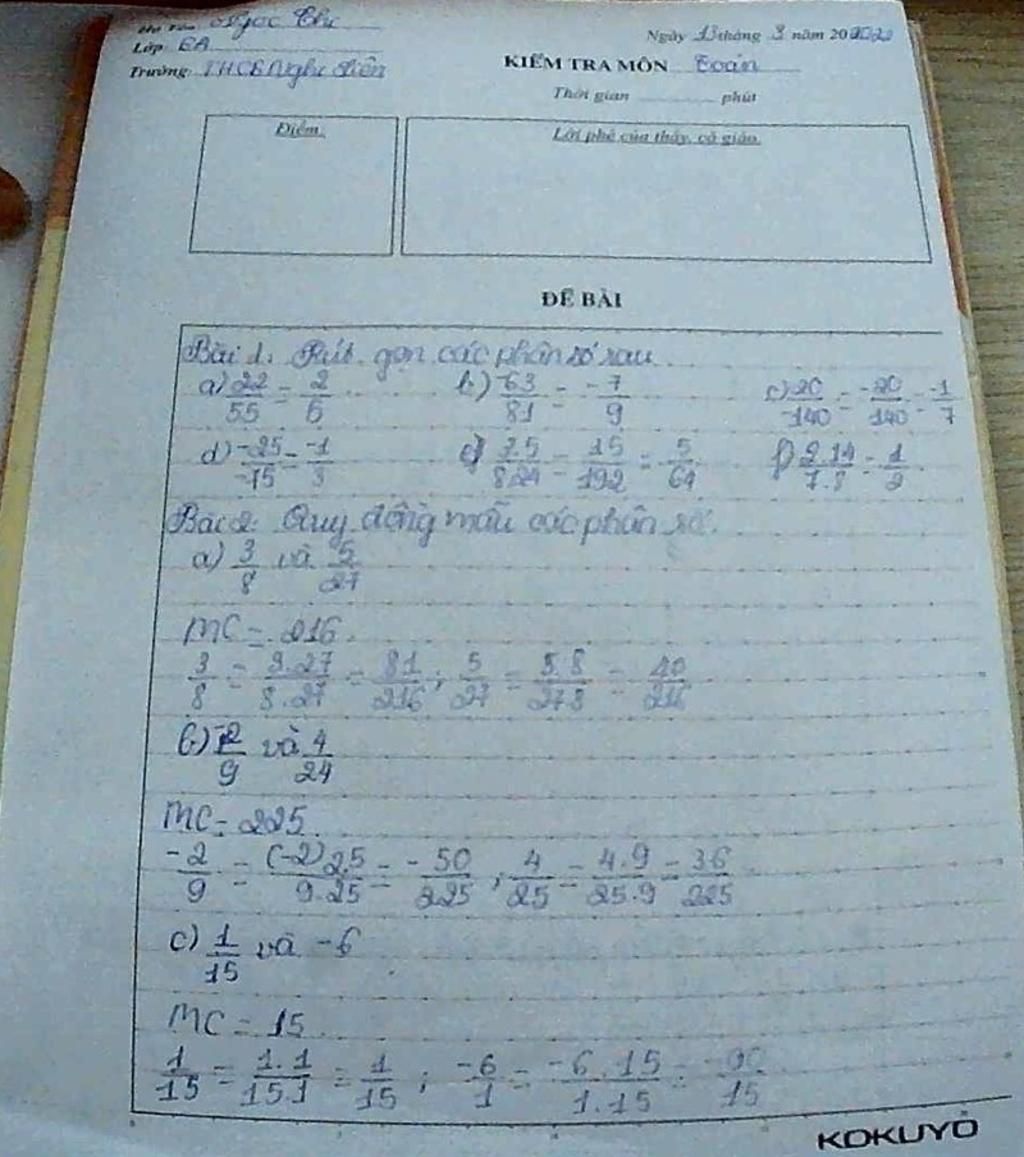 Họ tên Ngọc Thư
Ngày 13 tháng 3 năm 2020
Lớp 6A
Trường: THCS Nghi Liên
KIỂM TRA MÔN Toán
Thời gian phút
Điểm
Lời phê của thầy, cô giáo
ĐỀ BÀI
Bài 1: Rút gọn các phân số sau
a) 22/55 = 2/5 b) -63/81 = -7/9 c) 20/-140 = -20/140 = -1/7
d) -25/-75 = -1/3 e) 3.5/8.24 = 15/192 = 5/64 f) 2.14/7.8 = 1/2
Bài 2: Quy đồng mẫu các phân số.
a) 3/8 và 5/27
MC = 216
3/8 = 3.27/8.27 = 81/216 ; 5/27 = 5.8/27.8 = 40/216
b) -2/9 và 4/24
MC = 225
-2/9 = (-2)25/9.25 = -50/225 ; 4/25 = 4.9/25.9 = 36/225
c) 1/15 và -6
MC = 15
1/15 = 1.1/15.1 = 1/15 ; -6/1 = -6.15/1.15 = -90/15
KOKUYO